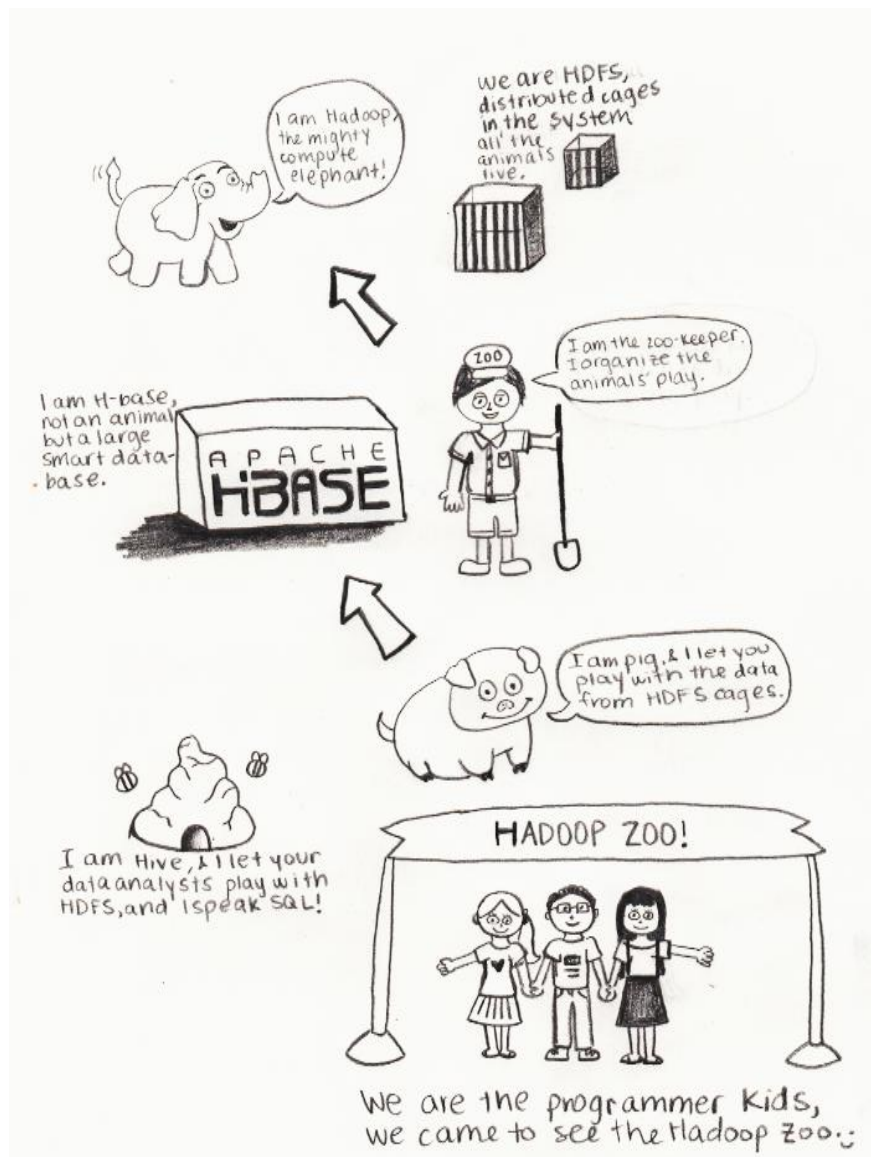 I am Hadoop,
the mighty
compute
elephant!
we are HDFS,
distributed cages
in the system
all the
animals
live.
I am the zoo-keeper.
I organize the
animals' play.
ZOO
I am H-base,
not an animal
but a large
smart data-
base.
APACHE
HBASE
I am pig, & I let you
play with the data
from HDFS cages.
I am Hive, & I let your
data analysts play with
HDFS, and I speak SQL!
HADOOP ZOO!
We are the programmer Kids,
we came to see the Hadoop Zoo.